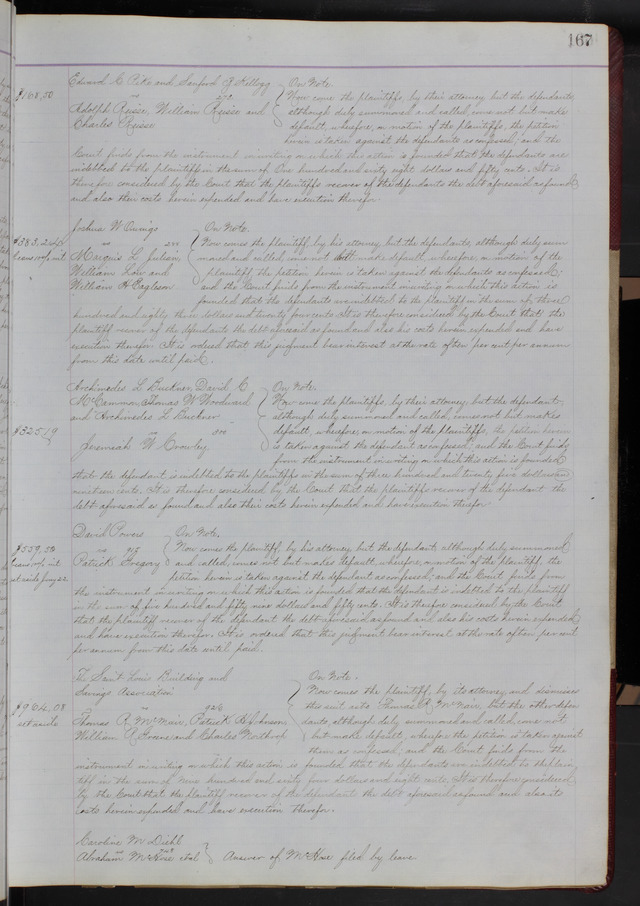 167
Edward C. Pike and Sanford G. Kellogg
vs
Adolph Reisse, William Reisse and
Charles Reisse
On Note
$168.50
Now come the plaintiffs, by their attorney but the defendants
although duly summoned and called, come not but make
default, wherefore, on motion of the plaintiffs, the petition
herein is taken against the defendants as confessed, and the
Court finds from the instrument in writing on which this action is founded that the defendants are
indebted to the plaintiffs in the sum of One hundred and sixty eight dollars and fifty cents. It is
therefore considered by the Court that the plaintiffs recover of the defendants the debt aforesaid as found
and also their costs herein expended and have execution therefor
Joshua W. Owings
vs
Marquis L. Julian,
William Low and
William H.
On Note.
$383.24
bears 10% int
Now comes the plaintiff by his attorney, but the defendants, although duly sum
moned and called, come not but make default, wherefore, on motion of the
plaintiff, the petition herein is taken against the defendants as confessed;
and the Court finds from the instrument in writing on which this action is
founded that the defendants are indebted to the plaintiff in the sum of three
hundred and eighty three dollars and twenty four cents. It is therefore considered by the Court that the
plaintiff recover of the defendants the debt aforesaid as found and also his costs herein expended and have
execution therefor. It is ordered that this judgment bear interest at the rate of ten per cent per annum
from this date until paid.
Archimedes L. Buckner, David C.
McCammon, Thomas W. Woodward
and Archimedes L. Buckner
vs
Jeremiah W. Crowley
On Note.
$325.19
Now come the plaintiffs, by their attorney, but the defendant,
although duly summoned and called, comes not but makes
default, wherefore, on motion of the plaintiffs, the petition herein
is taken against the defendant as confessed, and the Court finds
from the instrument in writing on which this action is founded
that the defendant is indebted to the plaintiffs in the sum of three hundred and twenty five dollars and
nineteen cents. It is therefore considered by the Court that the plaintiffs recover of the defendant the
debt aforesaid as found and also their costs herein expended and have execution therefor
David Powers
vs
Patrick Gregory
On Note.
$559.50
bears 10% int
set aside
Now comes the plaintiff, by his attorney, but the defendant, although duly summoned
and called, comes not but makes default, wherefore, on motion of the plaintiff, the
petition herein is taken against the defendant as confessed; and the Court finds from
the instrument in writing on which this action is founded that the defendant is indebted to the plaintiff
in the sum of five hundred and fifty nine dollars and fifty cents. It is therefore considered by the Court
that the plaintiff recover of the defendant the debt aforesaid as found and also his costs herein expended
and have execution therefor. It is ordered that this judgment bear interest at the rate of ten per cent
per annum from this date until paid.
The Saint Louis Building and
Savings Association
vs
Thomas R. McNair, Patrick B. Johnson,
William R. Greene and Charles Northrop
On Note.
$964.08
set aside
Now comes the plaintiff, by its attorney, and dismisses
this suit as to Thomas R. McNair, but the other defen
dants, although duly summoned and called, come not
but make default, wherefore the petition is taken against
them as confessed; and the Court finds from the
instrument in writing on which this action is founded that the defendants are indebted to the plain
tiff in the sum of nine hundred and sixty four dollars and eight cents. It is therefore considered
by the Court that the plaintiff recover of the defendant the debt aforesaid as found and also its
costs herein expended and have execution therefor.
Caroline M. Diehl
vs
Abraham McKose et al
Answer of McKose filed by leave.